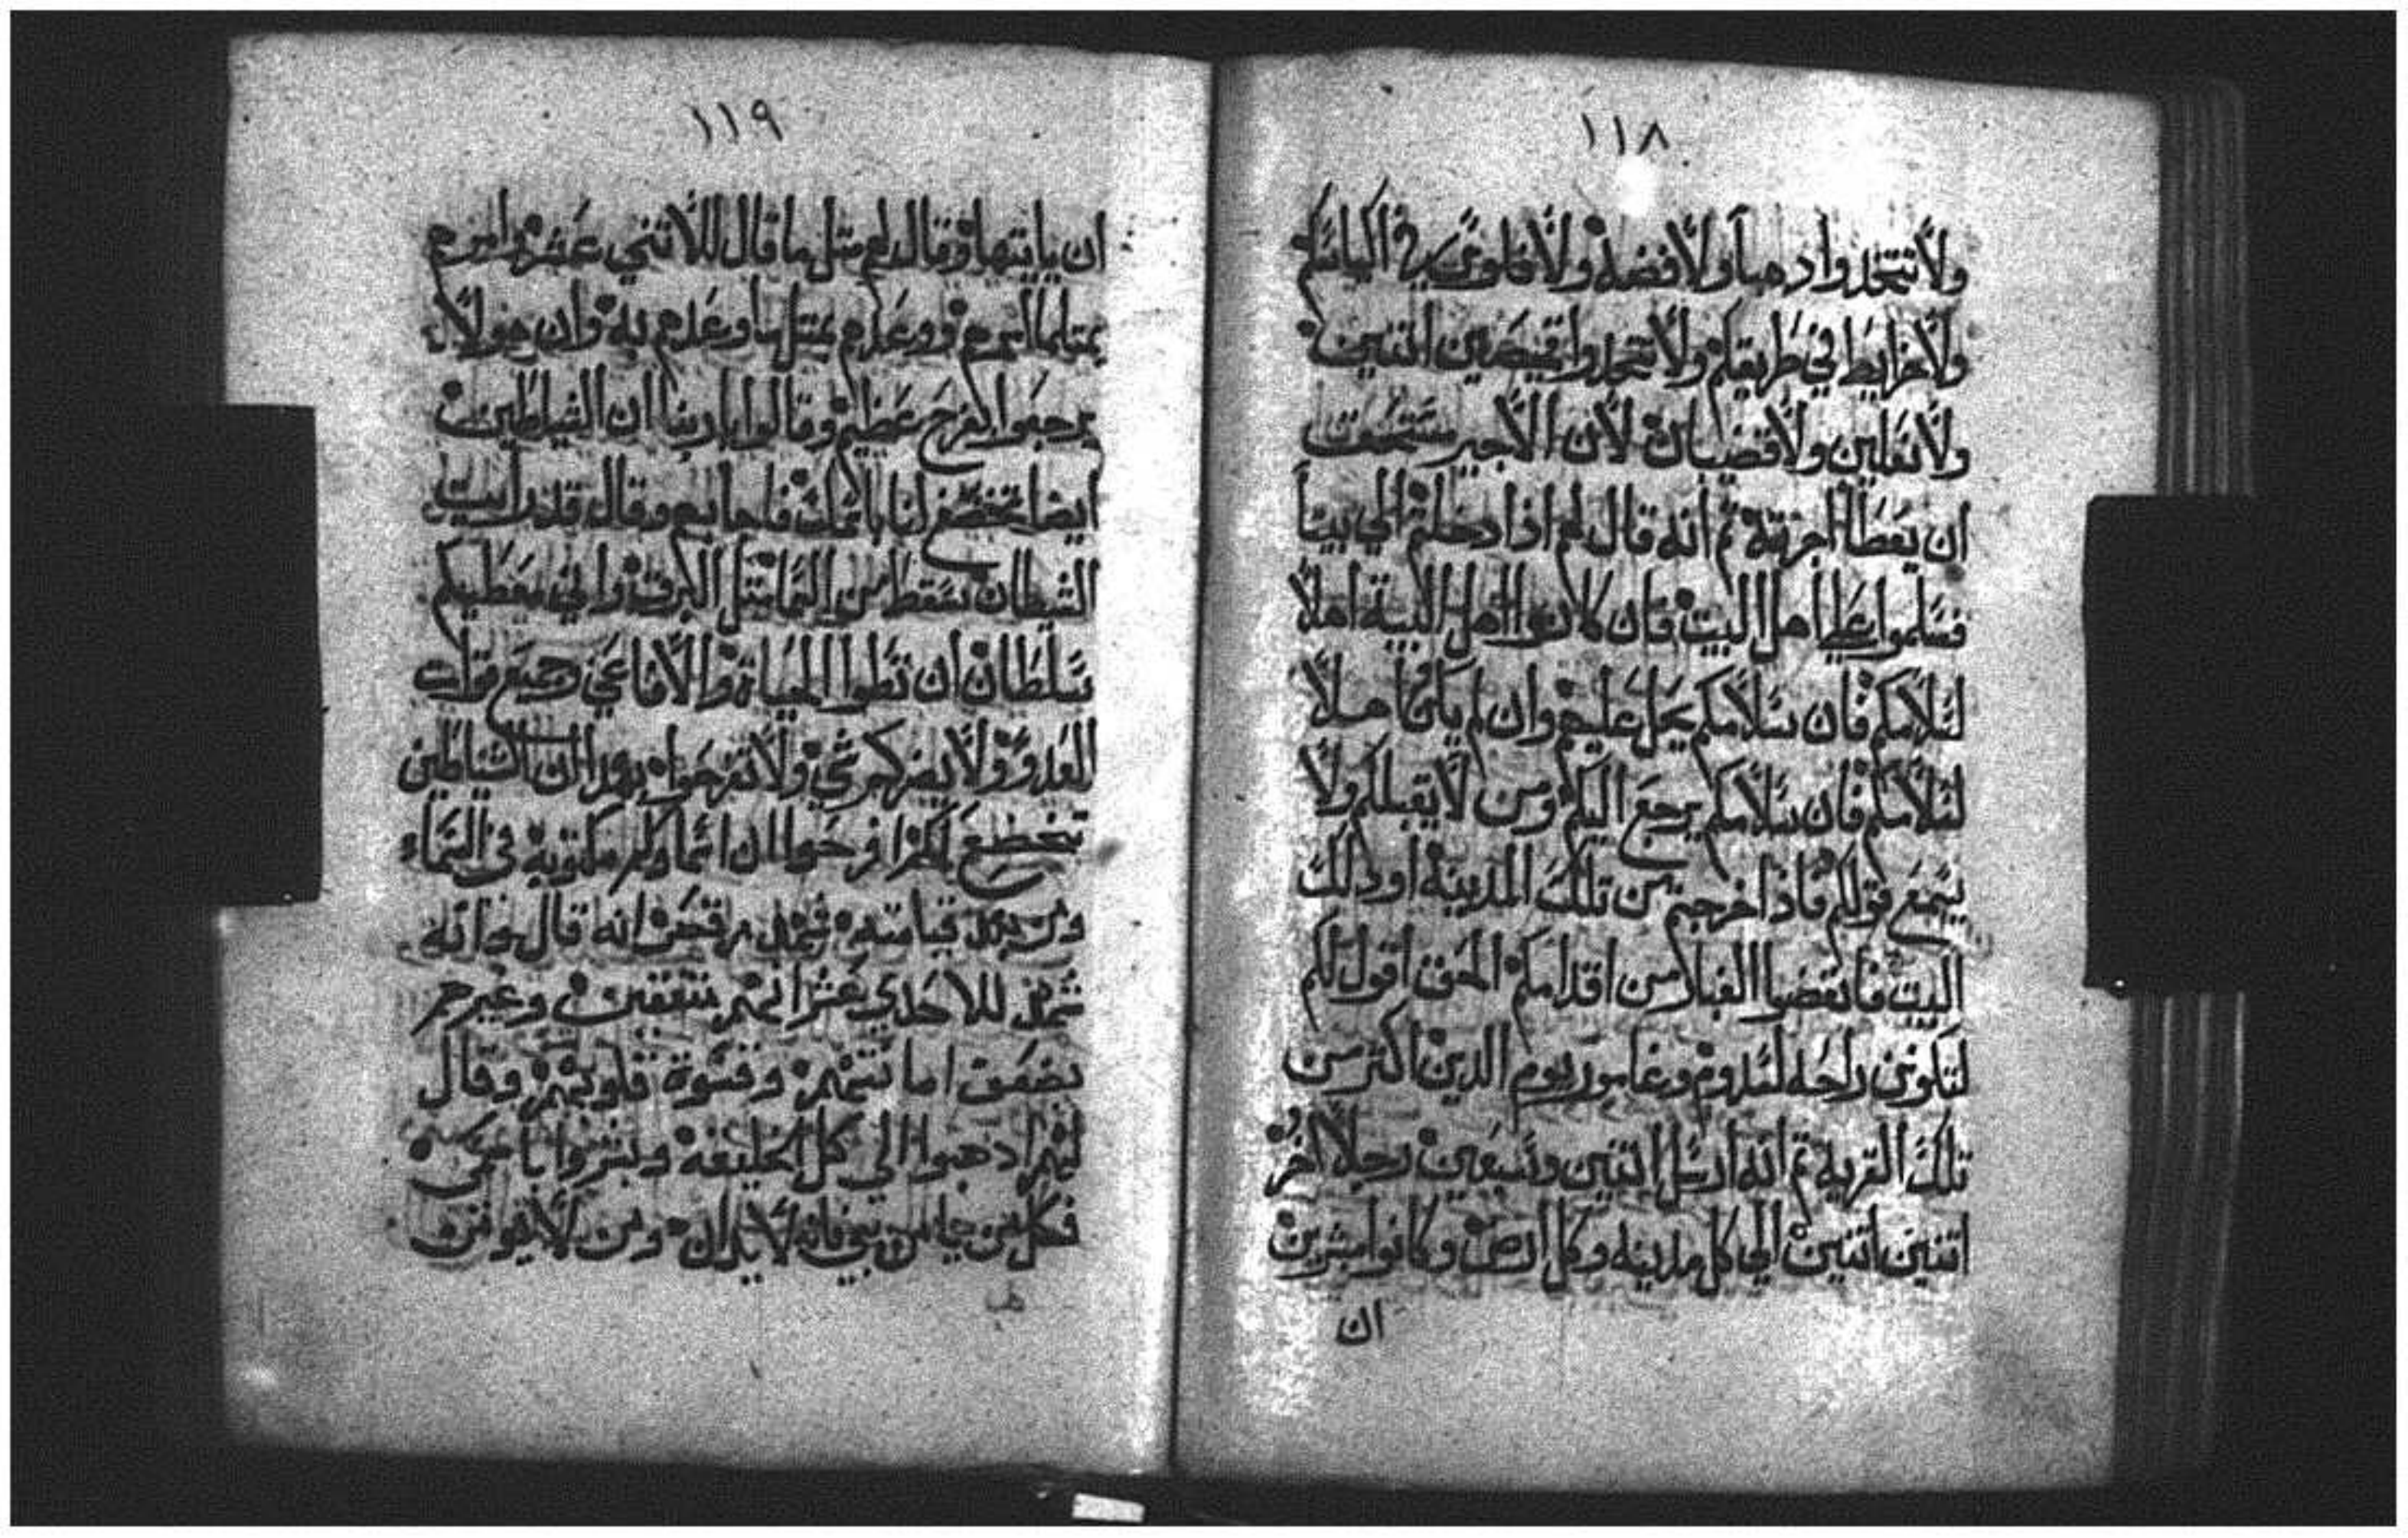 ١١٨
ولا تتخدوا دهباً ولا فضه ولا فلوس في اكياسكم
ولا مزايط في طريقكم ولا تتخدوا قميصين اتنين
ولا نعلين ولا قضبان لان الاجير مستحق
ان يعطا اجرته تم انه قال لهم اذا دخلتم الي بيتاً
فسلموا علي اهل البيت فان كانوا اهل البيه اهلاً
لسلامكم فان سلامكم يحل عليهم وان لم يكن اهلاً
لسلامكم فان سلامكم يرجع اليكم ومن لا يقبلكم ولا
يسمع قولكم فاذا خرجتم من تلك المدينه او ذلك
البيت فانفضوا الغبار من اقدامكم الحق اقول لكم
لتكونن راحه لسدوم وغامور يوم الدين اكتر من
تلك القريه تم انه ارسل اتنين وسبعين رجلاً اخر
اتنين اتنين الي كل مدينه وكل ارض وكانوا مبشرين
ان
١١٩
ان ياتيها وقال لهم متل ما قال للاتني عشر وامرهم
بمتلما امرهم ووعدهم بمتل ما وعدهم به وان هولاء
يرجعوا بفرح عظيم وقالوا يا ربنا ان الشياطين
ايضا تخضع لنا باسمك فاجابهم وقال قد رايت
الشيطان سقط من السما متل البرق واني معطيكم
سلطان ان تطوا الحياة والافاعي وجميع قوات
العدو ولا يضركم شي ولا تفرحوا بهدا ان الشياطين
تخضع لكم افرحوا ان اسماوكم مكتوبه في السماء
ومن بعد قيامته شهد مرقص انه قال انه
شهد للاحدي عشر انهم متفقين وعيرهم
بضعف امانتهم وقسوة قلوبهم وقال
لهم اذهبوا الي كل الخليقه وبشروا باسمي
فكل من يامن بي فانه لا يدان ومن لا يومن